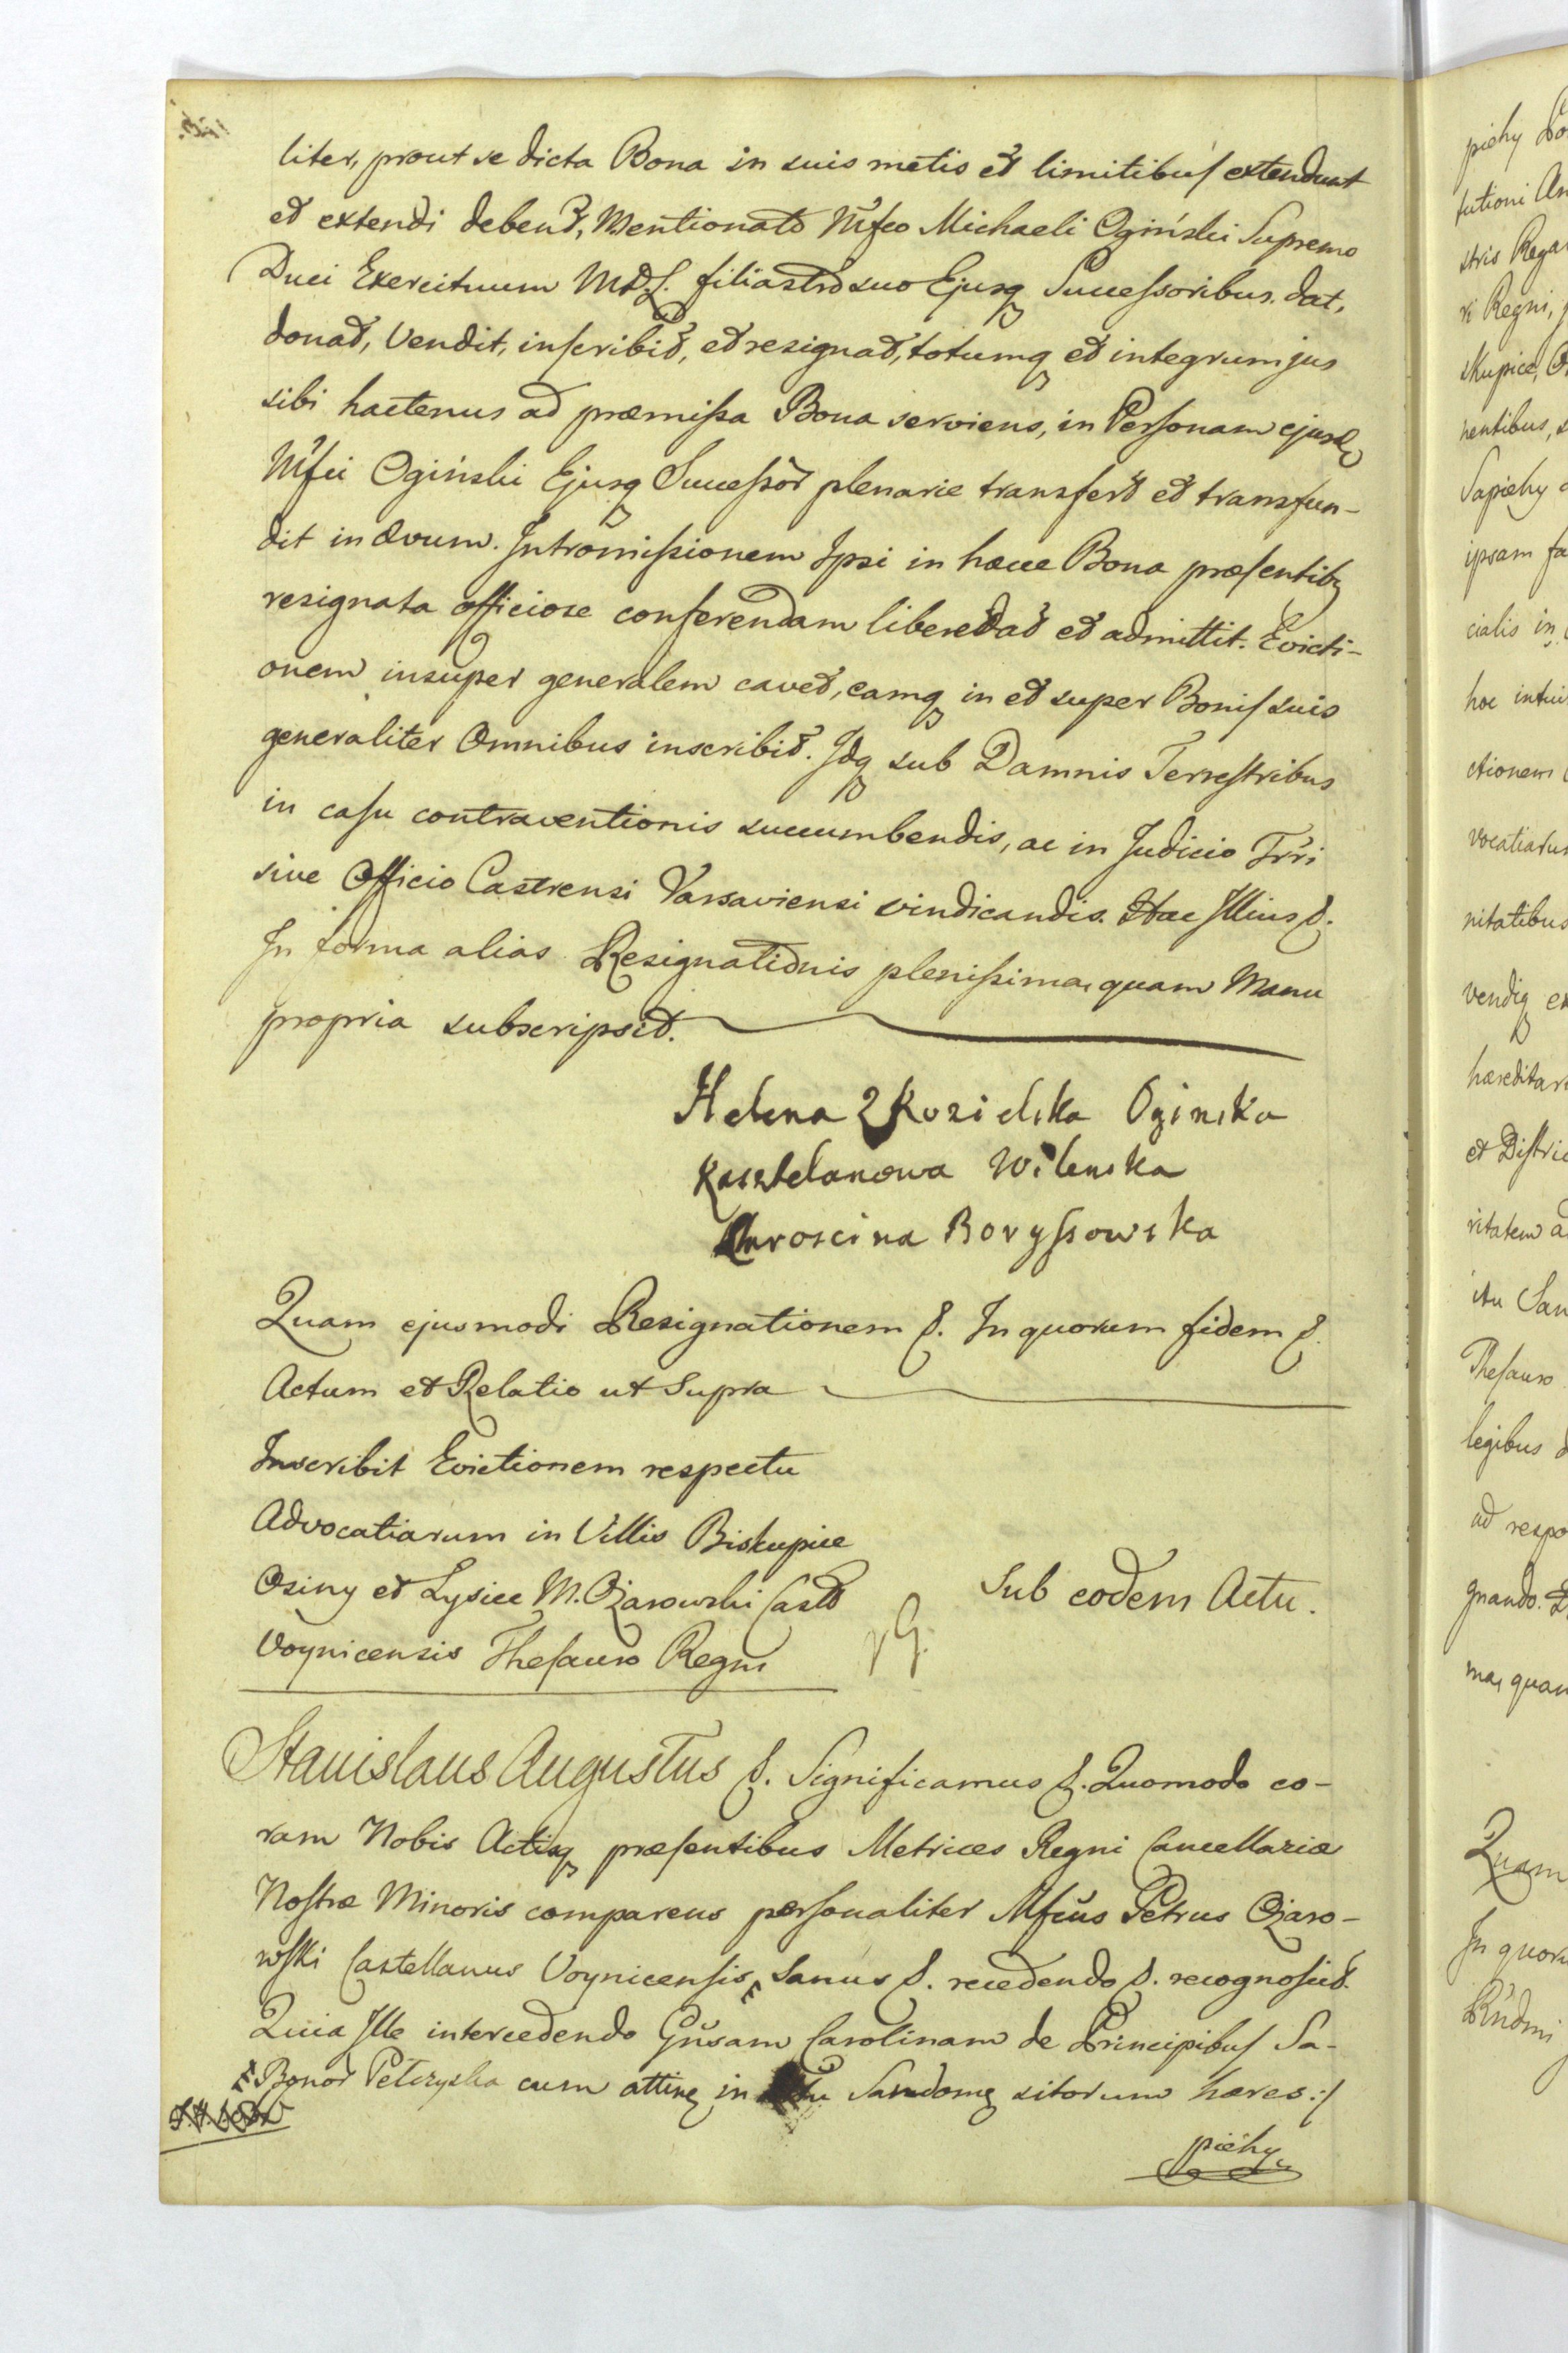 liter, prout se dicta Bona in suis metis et limitibus extendunt
et extendi debent, Mentionato Mfco Michaeli Ogiński Supremo
Duci Exercituum M.D.L. filiastro suo Ejusq Successoribus. dat,
donat, Vendit, inscribit, et resignat, totumq et integrum jus
sibi hactenus ad præmissa Bona serviens, in Personam ejusd
Mfci Ogiński Ejusq Successor plenarie transfert et transfun-
dit in ævum. Intromissionem Ipsi in hæcce Bona præsentibq
resignata officiose conferendam libere dat et admittit. Evicti-
onem insuper generalem cavet, eamq in et super Bonis suis
generaliter Omnibus inscribit. Idq sub Damnis Terrestribus
in casu contraventionis succumbendis, ac in Judicio Trri
sive Officio Castrensi Varsaviensi vindicandis. Hac Illius &.
In forma alias Resignationis plenissima, quam Manu
propria subscripsit.
Helena Z Kozielska Oginska
Kasztelanowa Wilenska
Staroscina Boryssowska
Quam ejusmodi Resignationem &. In quorum fidem &.
Actum et Relatio ut Supra
Inscribit Evictionem respectu
Advocatiarum in Villis Biskupice
Osiny et Lysiec M. Ożarowski Castt
Voynicensis Thesauro Regni
Sub eodem Actu.
Stanislaus Augustus &. Significamus &. Quomodo co-
ram Nobis Actisq præsentibus Metrices Regni Cancellariæ
Nostræ Minoris comparens personaliter Mfcus Petrus Ożaro-
wski Castellanus Voynicensis Sanus &. recedendo &. recognoscit.
Quia Ille intercedendo Gnsam Carolinam de Principibus Sa-
Bonor Petryska cum attineq in Sandomq sitorum hæres :/
piehy
piehy
tutioni
stris
ri Regni,
skupice,
nentibus,
Sapiehy
ipsam
cialis in
hoc
ctionem
vocatiarum
nitatibus
vendiq
et
ritatem
Thesauro
legibus
ad
gnando.
ma, quam
Quam